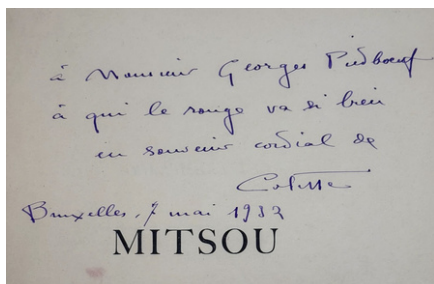 à Monsieur Georges Piedboeuf
à qui le rouge va si bien
en souvenir cordial de
Colette
Bruxelles, 7 mai 1932
MITSOU